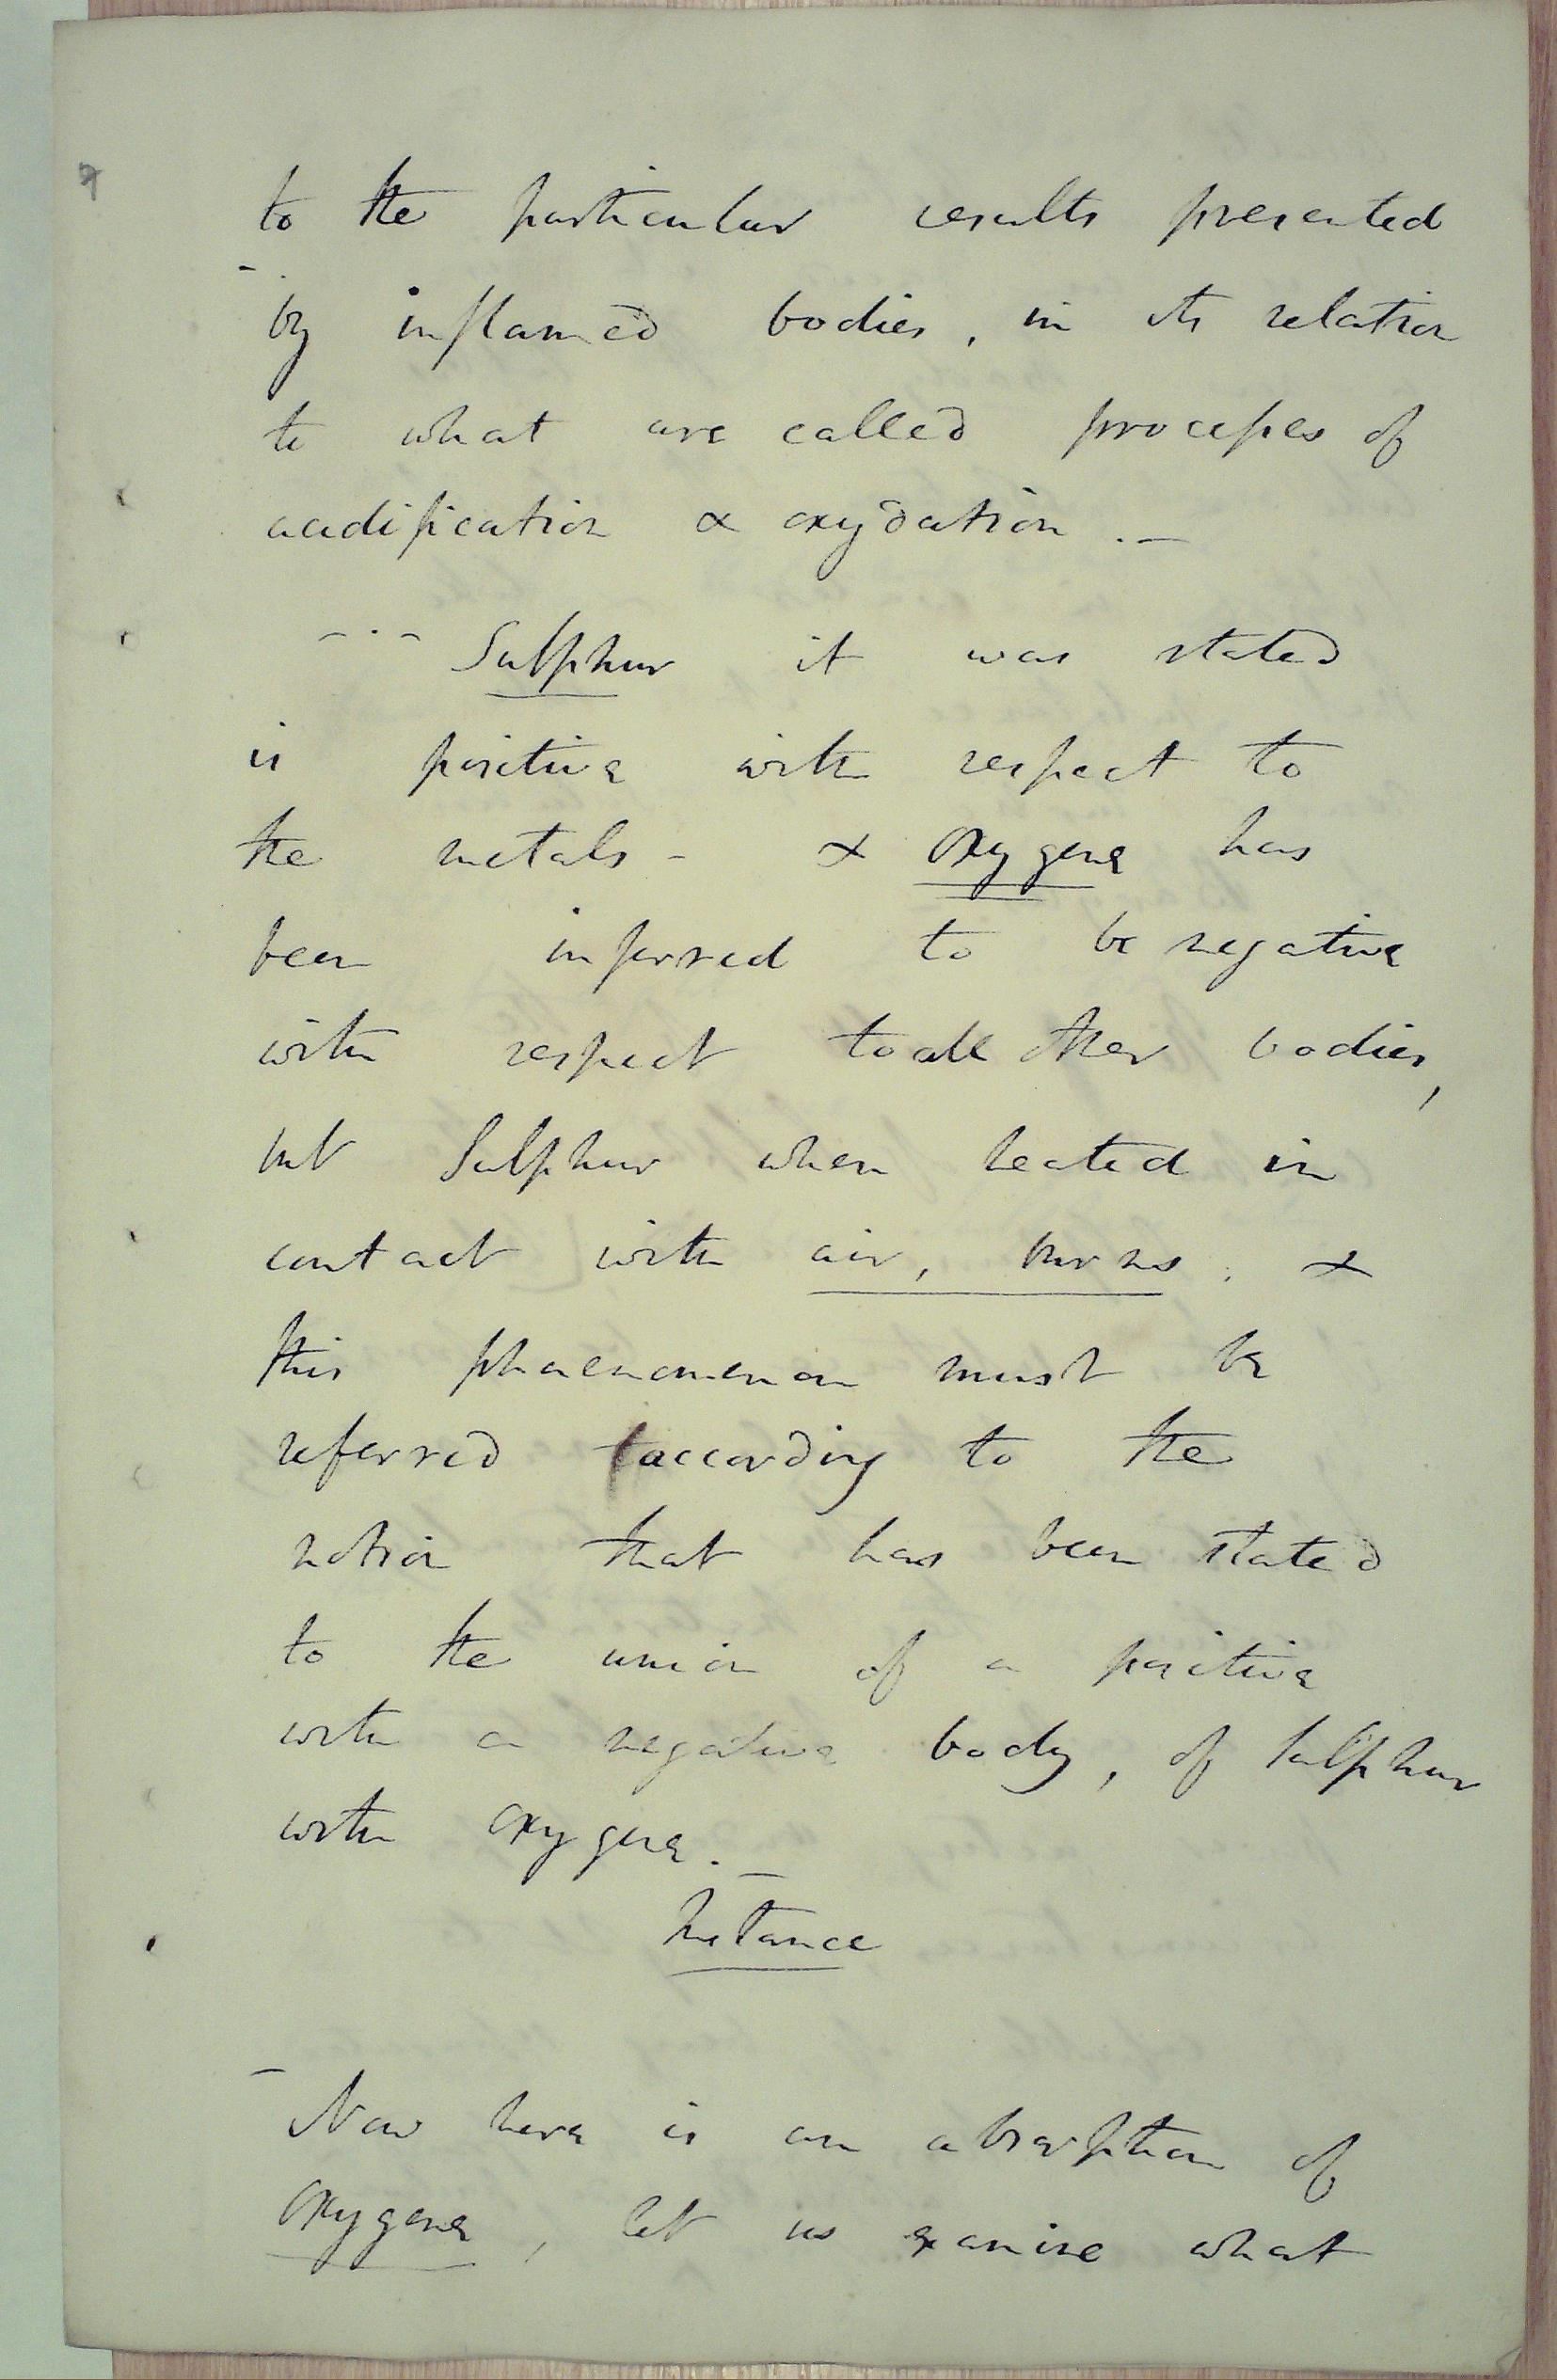 7
to the particular results presented
by inflamed bodies, in its relation
to what are called processes of
acidification & oxydation.—
- - - Sulphur it was stated
is positive with respect to
the metals - & oxygene has
been inferred to be negative
with respect to all other bodies,
but Sulphur when heated in
contact with air, burns. &
this phaenomenon must be
referred according to the
notion that has been stated
to the union of a positive
with a negative body, of sulphur
with oxygene.—
Instance
- Now here is an absorption of
oxygene, let us examine what